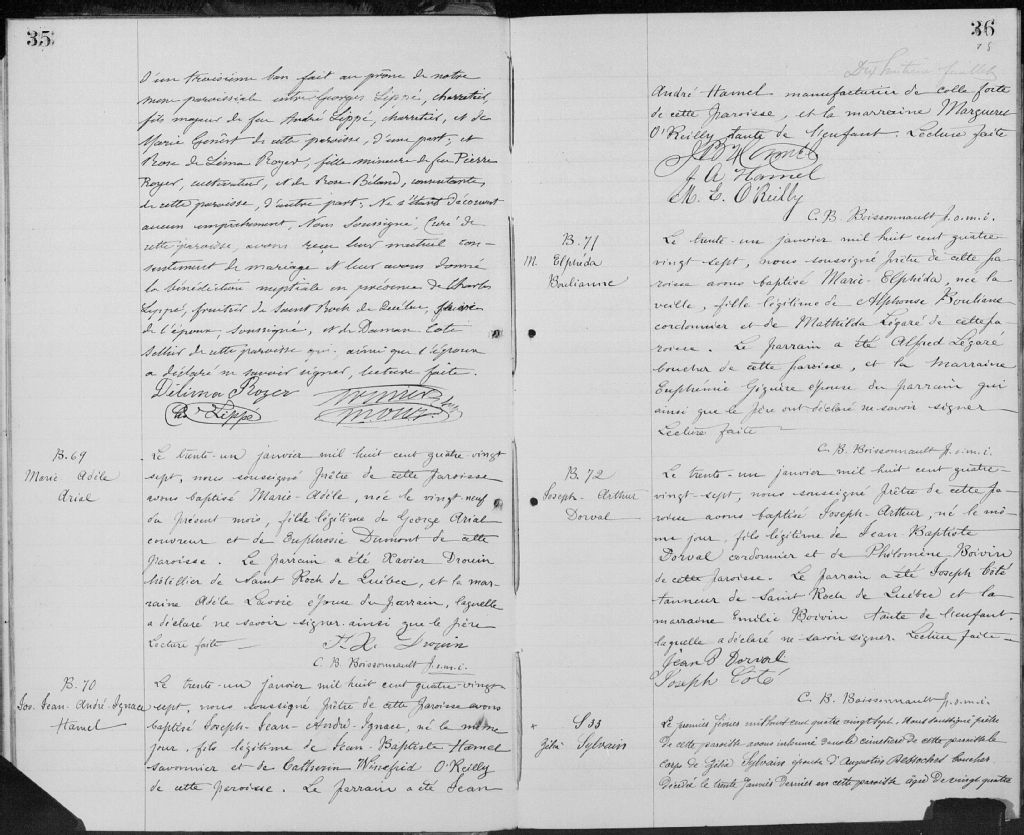 35
d'un troisième ban fait au prône de notre
messe paroissiale entre Georges Lippé, charretier,
fils majeur de feu André Lippé, charretier, et de
Marie Genest de cette paroisse, d'une part; et
Rose de Lima Royer, fille mineure de feu Pierre
Royer, cultivateur, et de Rose Béland, consentante,
de cette paroisse, d'autre part; Ne s'étant découvert
aucun empêchement, Nous Soussigné, Curé de
cette paroisse, avons reçu leur mutuel con-
sentement de mariage et leur avons donné
la bénédiction nuptiale en présence de Charles
Lippé, fruitier de Saint Roch de Québec, frère
de l'époux, soussigné, et de Damase Coté
sellier de cette paroisse qui ainsi que l'époux
a déclaré ne savoir signer, lecture faite.
Délima Royer
Lippé
B. 69
Marie Adèle
Arial
Le trente-un janvier mil huit cent quatre-vingt
sept, nous soussigné prêtre de cette paroisse
avons baptisé Marie-Adèle, née le vingt-neuf
du présent mois, fille légitime de George Arial
couvreur et de Euphrosie Dumont de cette
paroisse. Le parrain a été Xavier Drouin
hôtellier de Saint Roch de Québec, et la mar-
raine Adèle Lavoie épouse du parrain, laquelle
a déclaré ne savoir signer ainsi que le père
Lecture faite — F. X. Drouin
C. B. Boissonnault p.s.m.i.
B. 70
Jos. Jean-André-Ignace
Hamel
Le trente-un janvier mil huit cent quatre-vingt
sept, nous soussigné prêtre de cette paroisse avons
baptisé Joseph-Jean-André-Ignace, né le même
jour, fils légitime de Jean-Baptiste Hamel
savonnier et de Catherin Winefrid O'Reilly
de cette paroisse. Le parrain a été Jean
36
18
Dix huitième feuillet
André Hamel manufacturier de colle forte
de cette paroisse, et la marraine Marguerit
O'Reilly tante de l'enfant. Lecture faite
J B Hamel
J A Hamel
M. E. O'Reilly
C. B. Boissonnault p.s.m.i.
B. 71
M. Elphéda
Boulianne
Le trente-un janvier mil huit cent quatre
vingt sept, nous soussigné prêtre de cette pa-
roisse avons baptisé Marie-Elphéda, née la
veille, fille légitime de Alphonse Bouliane
cordonnier et de Mathilda Légaré de cette pa-
roisse. Le parrain a été Alfred Légaré
boucher de cette paroisse, et la marraine
Euphémie Giguère épouse du parrain qui
ainsi que le père ont déclaré ne savoir signer
Lecture faite —
C. B. Boissonnault p.s.m.i.
B. 72
Joseph-Arthur
Dorval
Le trente-un janvier mil huit cent quatre-
vingt-sept, nous soussigné prêtre de cette pa-
roisse avons baptisé Joseph-Arthur, né le mê-
me jour, fils légitime de Jean-Baptiste
Dorval cordonnier et de Philomène Boivin
de cette paroisse. Le parrain a été Joseph Côté
tanneur de Saint Roch de Québec et la
marraine Emilie Boivin tante de l'enfant,
laquelle a déclaré ne savoir signer. Lecture faite —
Jean B Dorval
Joseph Coté
C. B. Boissonnault p.s.m.i.
S 33
Zélie Sylvain
Le premier février mil huit cent quatre vingt sept, Nous soussigné prêtre
de cette paroisse avons inhumé dans le cimetière de cette paroisse le
corps de Zélie Sylvain épouse d'Augustin Desroches boucher
décédée le trente janvier dernier en cette paroisse âgée de vingt quatre